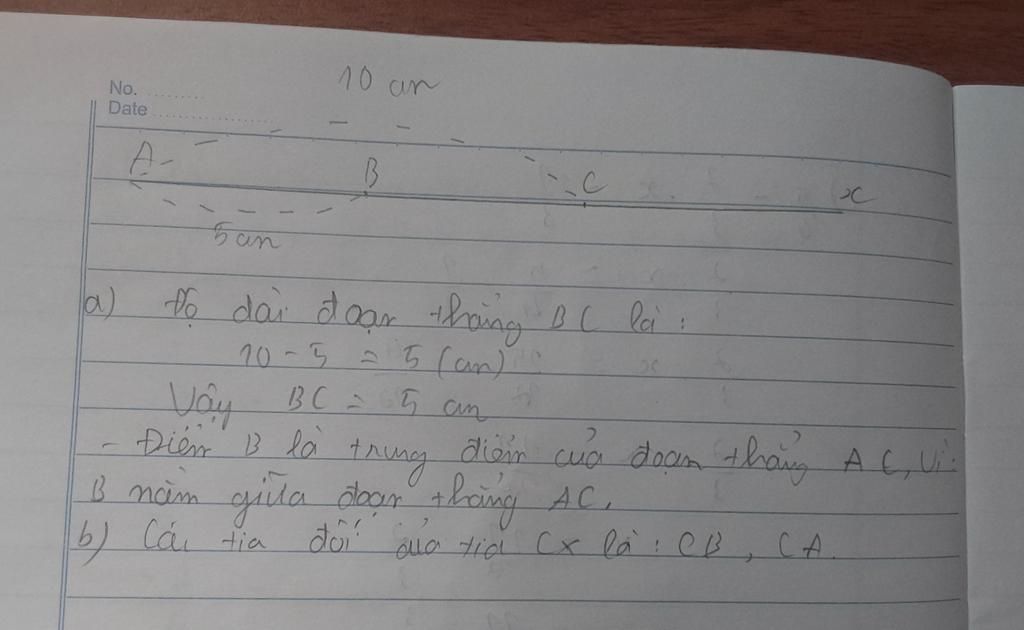 No. ..........
Date ......................
10 cm
A B C x
5 cm
a) Độ dài đoạn thẳng BC là:
10 - 5 = 5 (cm)
Vậy BC = 5 cm
- Điểm B là trung điểm của đoạn thẳng AC, Vì:
B nằm giữa đoạn thẳng AC.
b) Các tia đối của tia Cx là: CB, CA.